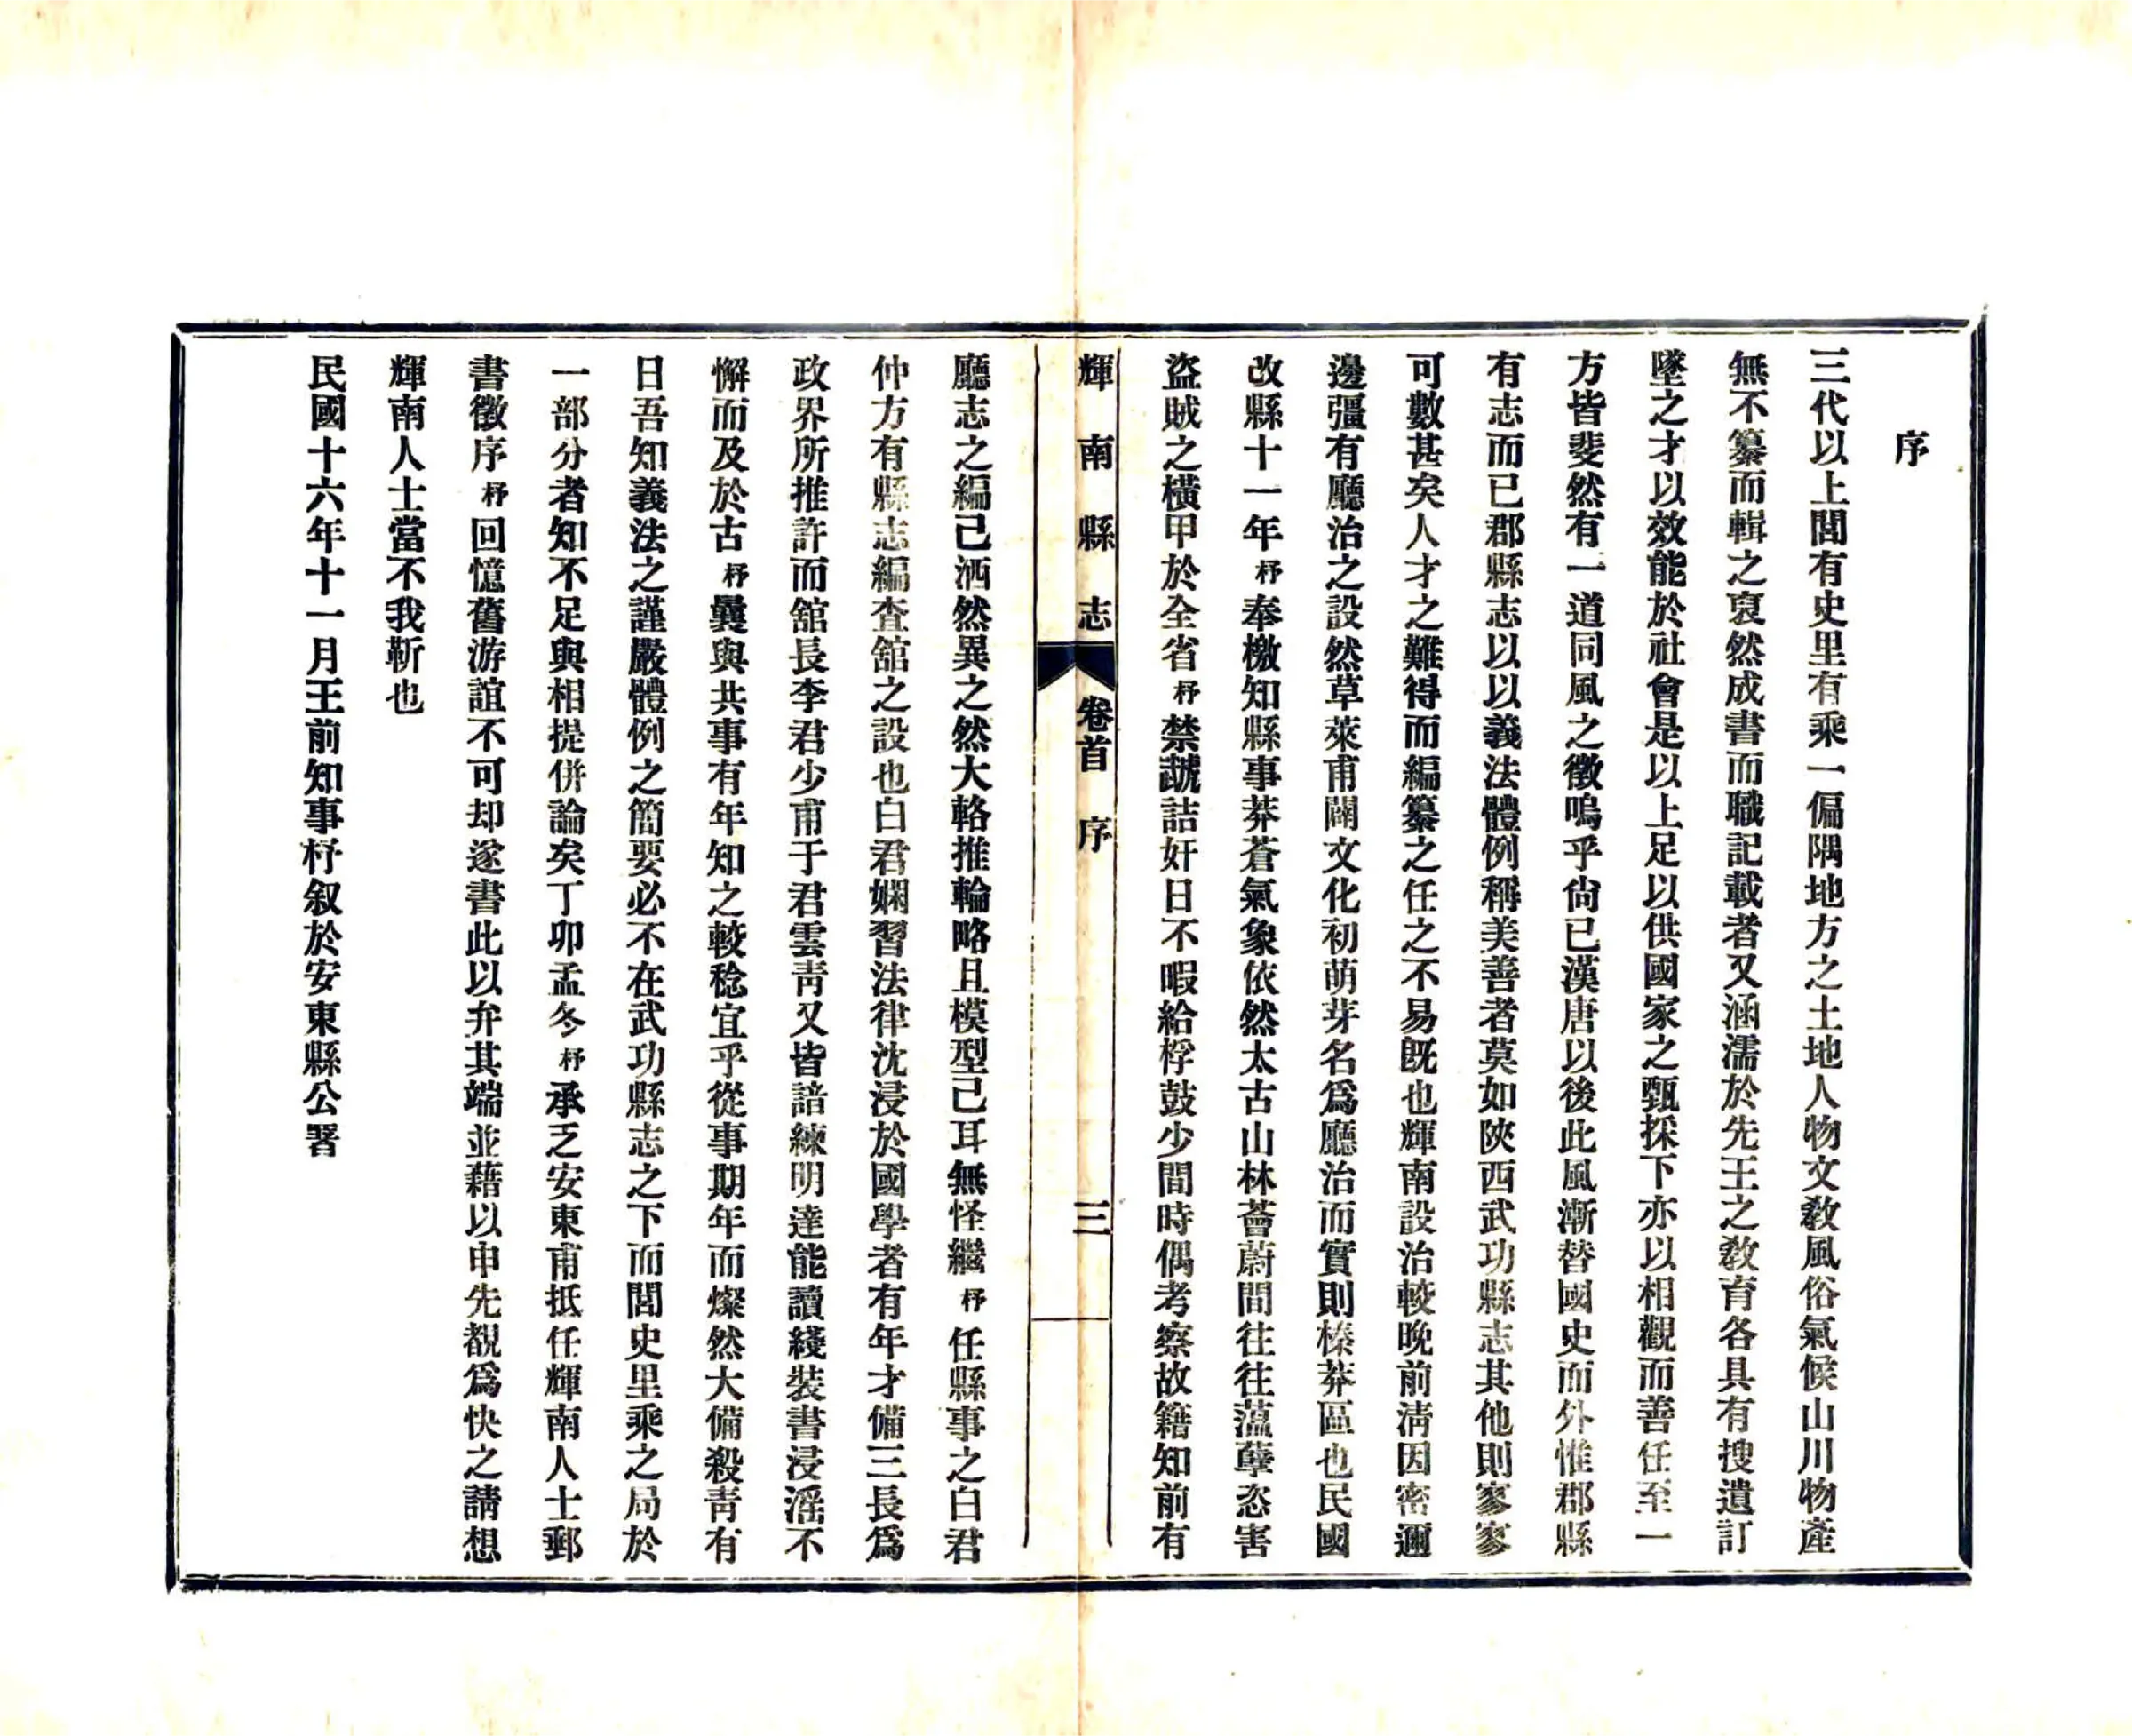 序
三代以上閭有史里有乘一偏隅地方之土地人物文敎風俗氣候山川物產
無不纂而輯之裒然成書而職記載者又涵濡於先王之敎育各具有搜遺訂
墜之才以效能於社會是以上足以供國家之甄採下亦以相觀而善任至一
方皆斐然有一道同風之徵嗚乎尙已漢唐以後此風漸替國史而外惟郡縣
有志而已郡縣志以以義法體例稱美善者莫如陝西武功縣志其他則寥寥
可數甚矣人才之難得而編纂之任之不易旣也輝南設治較晚前淸因密邇
邊彊有廳治之設然草萊甫闢文化初萌芽名爲廳治而實則榛莽區也民國
改縣十一年杼奉檄知縣事莽蒼氣象依然太古山林薈蔚間往往薀孽恣害
盜賊之橫甲於全省杼禁虣詰奸日不暇給桴鼓少間時偶考察故籍知前有
輝南縣志 卷首 序 三
廳志之編已洒然異之然大輅推輪略且模型已耳無怪繼杼任縣事之白君
仲方有縣志編查舘之設也白君嫻習法律沈浸於國學者有年才備三長爲
政界所推許而舘長李君少甫于君雲靑又皆諳練明達能讀綫裝書浸滛不
懈而及於古杼曩與共事有年知之較稔宜乎從事期年而燦然大備殺靑有
日吾知義法之謹嚴體例之簡要必不在武功縣志之下而閭史里乘之局於
一部分者知不足與相提併論矣丁卯孟冬杼承乏安東甫抵任輝南人士郵
書徵序杼回憶舊游誼不可却遂書此以弁其端並藉以申先覩爲快之請想
輝南人士當不我靳也
民國十六年十一月王前知事杼叙於安東縣公署